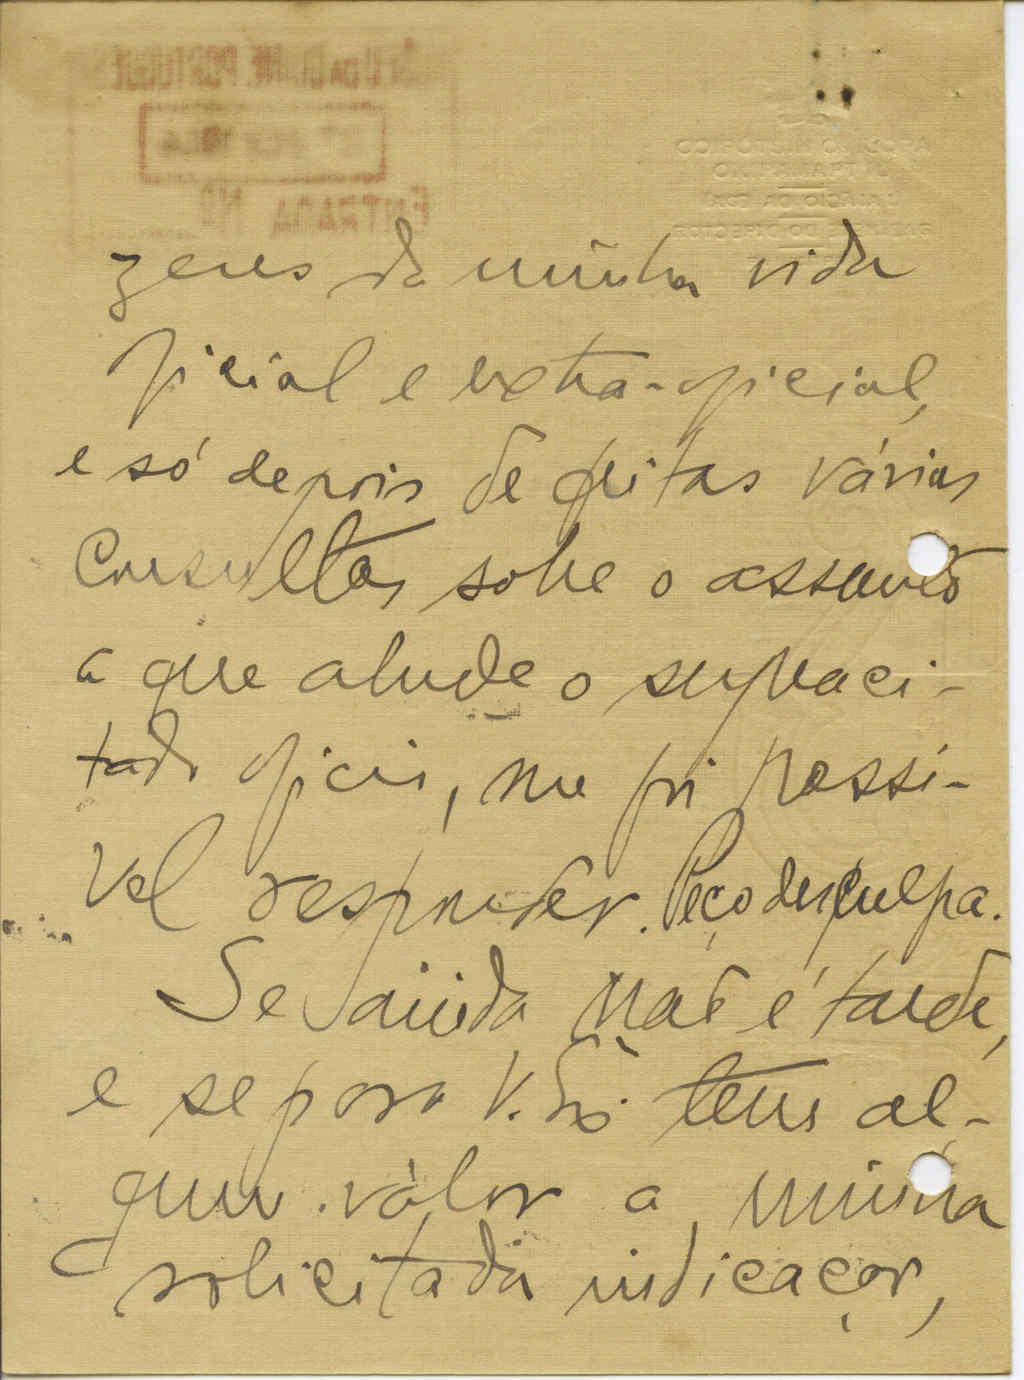 zens da minha vida
oficial e extra-oficial,
e só depois de feitas várias
consultas sobre o assunto
a que alude o supraci-
tado oficio, me foi possi-
vel responder. Peço desculpa.
Se ainda não é tarde,
e se para V. Exª tem al-
gum valor a minha
solicitada indicação,
ENTRADA Nº